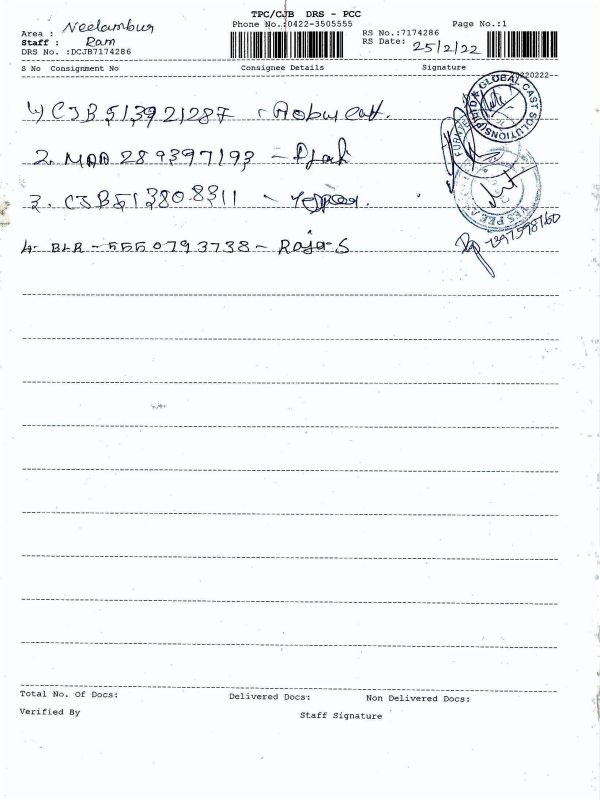 TPC/CJB DRS - PCC
Phone No.:0422-3505555
Page No.:1
Area : Neelambur
Staff : Ram
DRS No. :DCJB7174286
RS No.:7174286
RS Date: 25/2/22
S No Consignment No Consignee Details Signature
1) CJB513921287 -
2. MAA 289397193 -
3. CJB513808311 -
4. BLR - 5550793738 - Raja-S
GLOBAL CAST SOLUTIONS
Total No. Of Docs: Delivered Docs: Non Delivered Docs:
Verified By Staff Signature